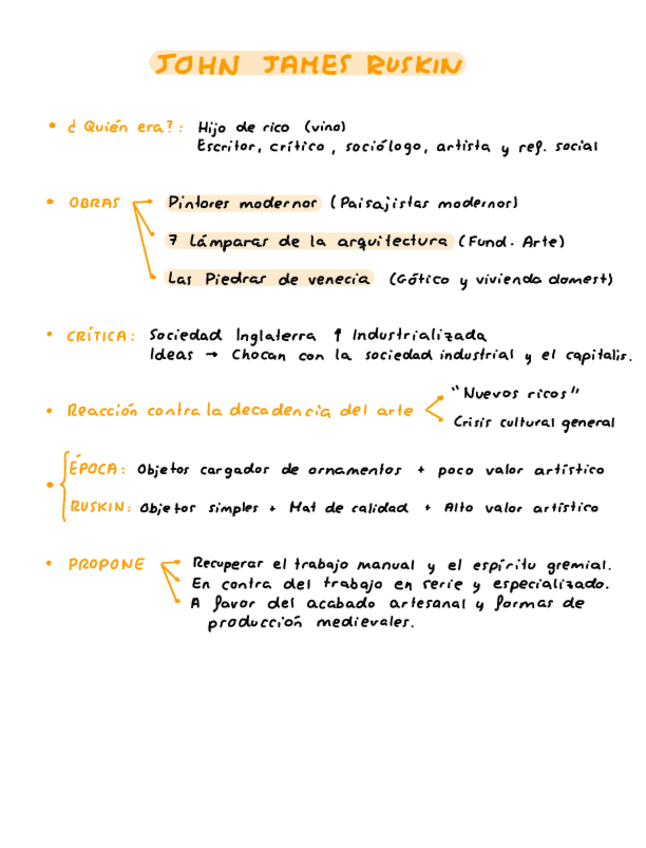 JOHN JAMES RUSKIN
• ¿Quién era?: Hijo de rico (vino)
Escritor, crítico, sociólogo, artista y ref. social
• OBRAS → Pintores modernos (Paisajistas modernos)
7 Lámparas de la arquitectura (Fund. Arte)
Las Piedras de venecia (Gótico y vivienda domest)
• CRÍTICA: Sociedad Inglaterra ↑ Industrializada
Ideas → Chocan con la sociedad industrial y el capitalis.
• Reacción contra la decadencia del arte
"Nuevos ricos"
Crisis cultural general
• ÉPOCA: Objetos cargados de ornamentos + poco valor artístico
RUSKIN: Objetos simples + Mat de calidad + Alto valor artístico
• PROPONE → Recuperar el trabajo manual y el espíritu gremial.
En contra del trabajo en serie y especializado.
A favor del acabado artesanal y formas de
producción medievales.